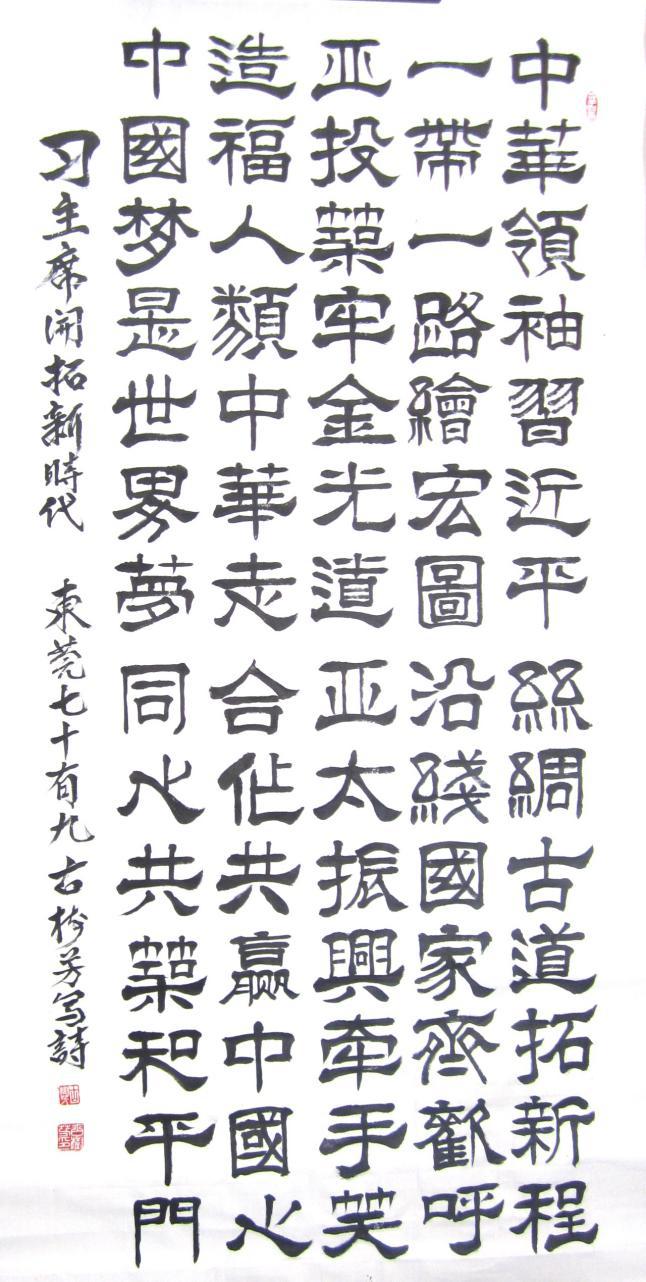 中華領袖習近平 絲綢古道拓新程
一帶一路繪宏圖 沿綫國家齊歡呼
亚投築牢金光道 亚太振興牵手笑
造福人類中華走 合作共赢中國心
中國梦是世界夢 同心共築和平門
习主席開拓新時代 東莞七十有九古 芳写詩